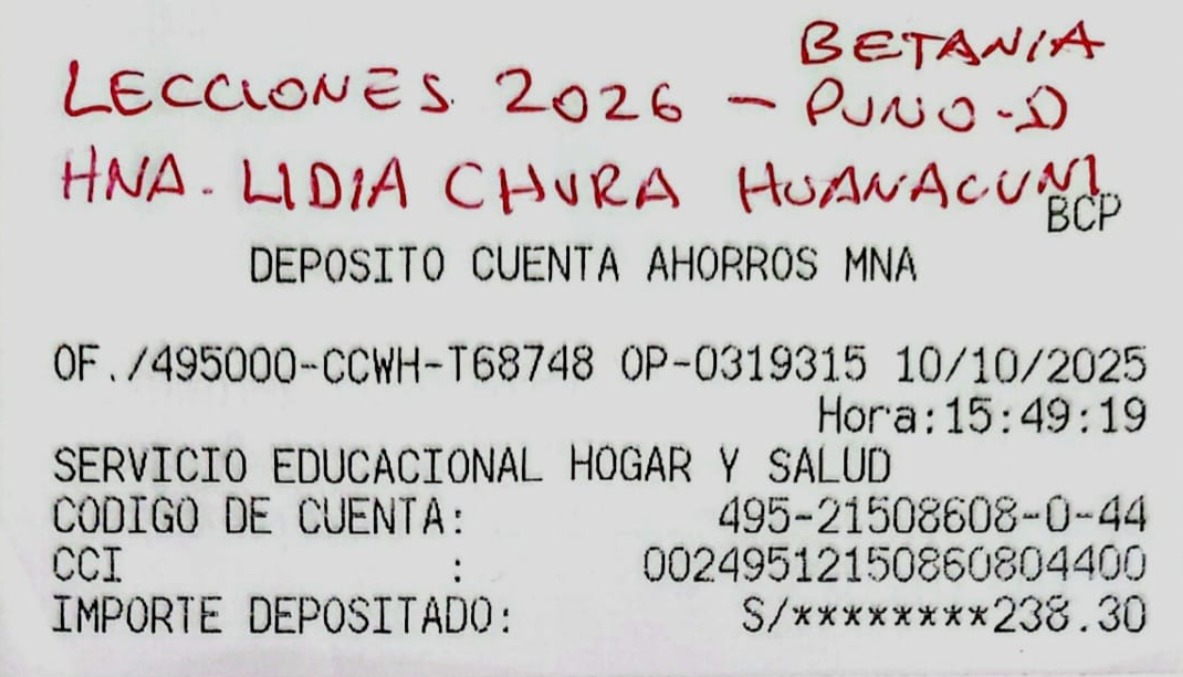 BETANIA
LECCIONES 2026 - PUNO-D
HNA. LIDIA CHURA HUANACUNI
BCP
DEPOSITO CUENTA AHORROS MNA
OF./495000-CCWH-T68748 OP-0319315 10/10/2025
Hora:15:49:19
SERVICIO EDUCACIONAL HOGAR Y SALUD
CODIGO DE CUENTA: 495-21508608-0-44
CCI : 00249512150860804400
IMPORTE DEPOSITADO: S/********238.30